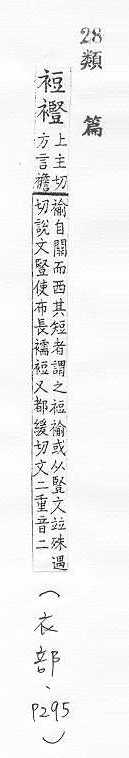 28
類篇
裋䙞
上主切
方言襜
褕自關而西其短者謂之裋褕或从豎文竝殊遇
切說文豎使布長襦裋又都緩切文二重音二
(衣部、
P295)